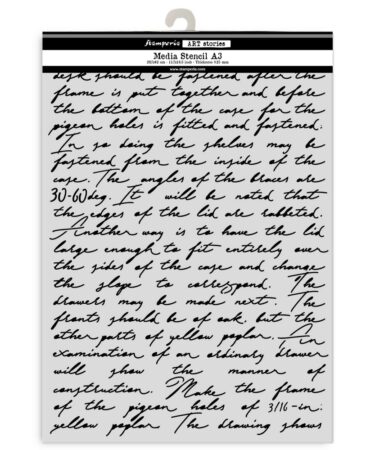 stamperia ART stories
Media Stencil A3
www.stamperia.com
desk should be fastened after the
frame is put together and before
the bottom of the case for the
pigeon holes is fitted and fastened.
In so doing the shelves may be
fastened from the inside of the
case. The angles of the braces are
30-60 deg. It will be noted that
the edges of the lid are rabbeted.
Another way is to have the lid
large enough to fit entirely over
the sides of the case and change
the slope to correspond. The
drawers may be made next. The
fronts should be of oak. but the
other parts of yellow poplar. An
examination of an ordinary drawer
will show the manner of
construction. Make the frame
of the pigeon holes of 3/16-in:
yellow poplar The drawing shows